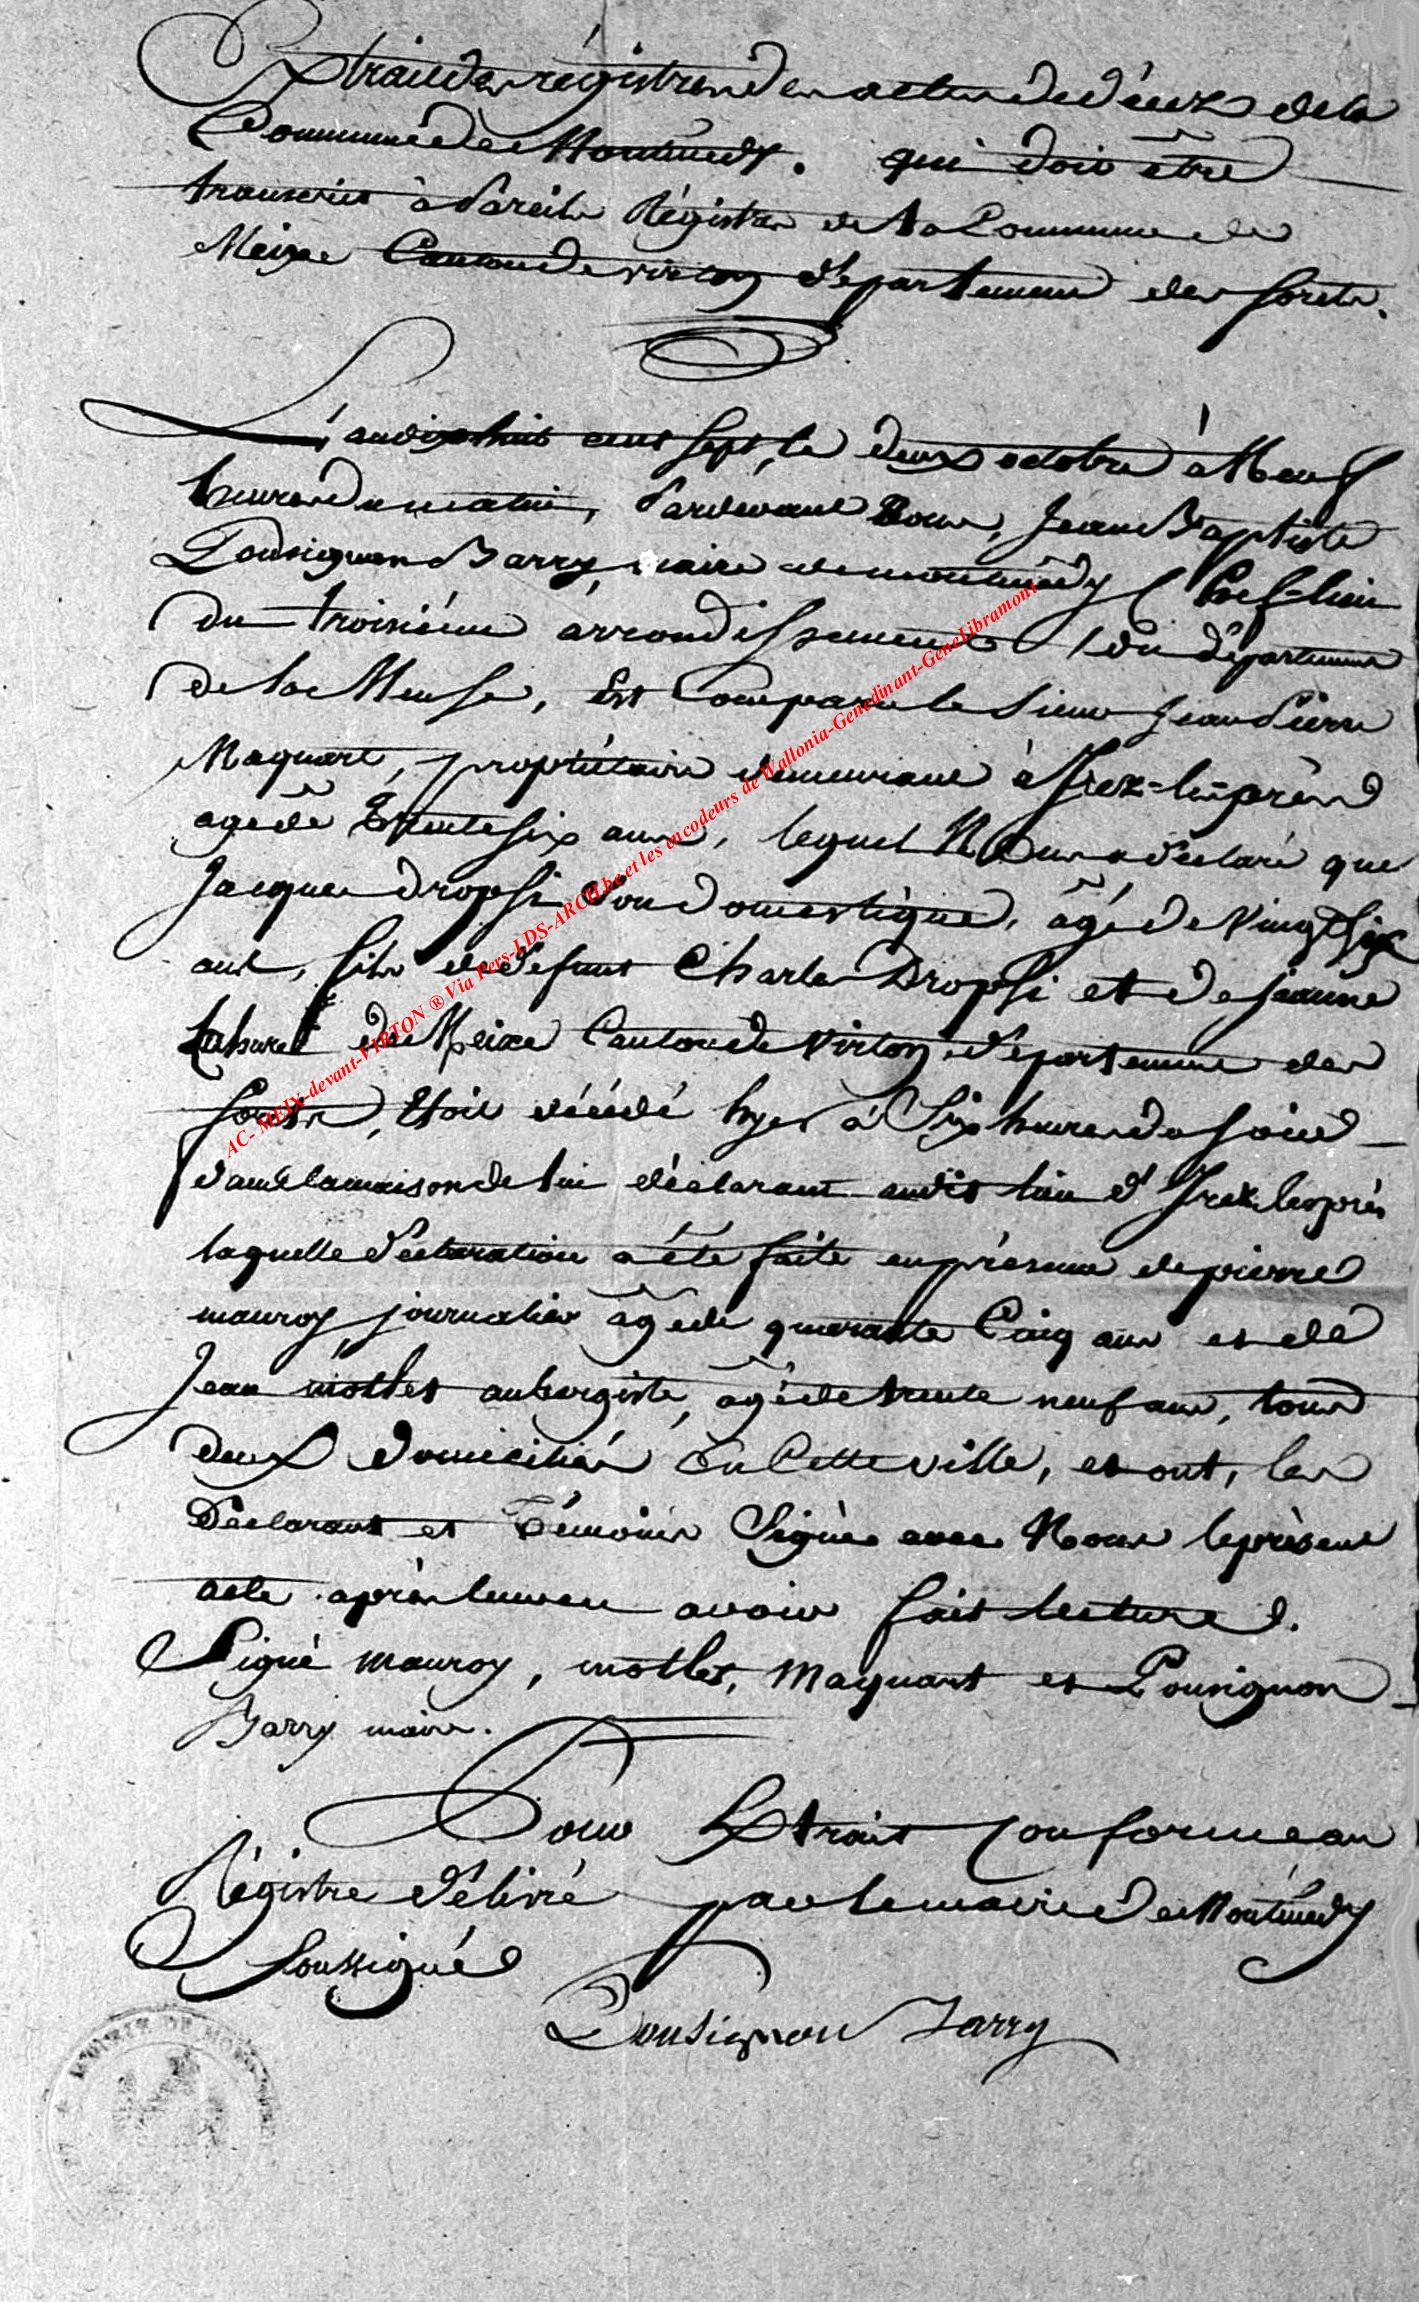 Extrait des régistres des actes de décez de la
Commune de Montmedy. qui doit être
transcrit à Pareils Régistres de la Commune de
Meixe Canton de virton département des forets.
L'an dix huit cent sept, le deux octobre à Neuf
heures du matin, Pardevant Nous, Jean Baptiste
Pousignon Barry, maire de montmédy Chef-lieu
du troisiéme arrondissement du département
de la Meuse, Est Comparu le Sieur Jean Pierre
Maquart, propriétaire demeurant à Irez-les-prés
agé de Trente six ans, lequel Nous a déclaré que
Jacques Dropsi Son domestique, âgé de Vingt Six
ans, fils de défunt Charles Dropsi et de jeanne
Lahure de Meixe Canton de Virton département des
forets, Etoit décédé hyer à Six heures du soir
dans la maison de lui déclarant audit lieu d'Irez les prés
laquelle déclaration a été faite en présence de pierre
mauroy journalier âgé de quarante Cinq ans et de
Jean mottet aubergiste, âgé de trente neuf ans, tous
deux domiciliés En Cette ville, et ont, les
Déclarant et Témoins Signé avec Nous le présent
acte après leur en avoir fait lecture.
Signé mauroy, mottet, Maquart et Pousignon
Barry maire.
Pour Extrait Conforme au
Régistre délivré par le maire de Montmédy
Soussigné
Pousignon Barry
AC- MEIX-devant-VIRTON ® Via Pers-LDS-ARCH.be et les encodeurs de Wallonia-Genedinant-GeneLibramont